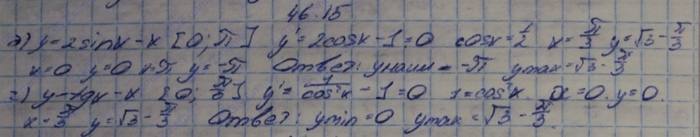 46.15
в) y=2sinx-x [0; π] y'=2cosx-1=0 cosx=1/2 x=π/3 y=√3-π/3
x=0 y=0 x=π y=-π Ответ: yнаим=-π ymax=√3-π/3
г) y=tgx-x [0; π/3] y'=1/cos²x-1=0 1=cos²x x=0 y=0
x=π/3 y=√3-π/3 Ответ: ymin=0 ymax=√3-π/3